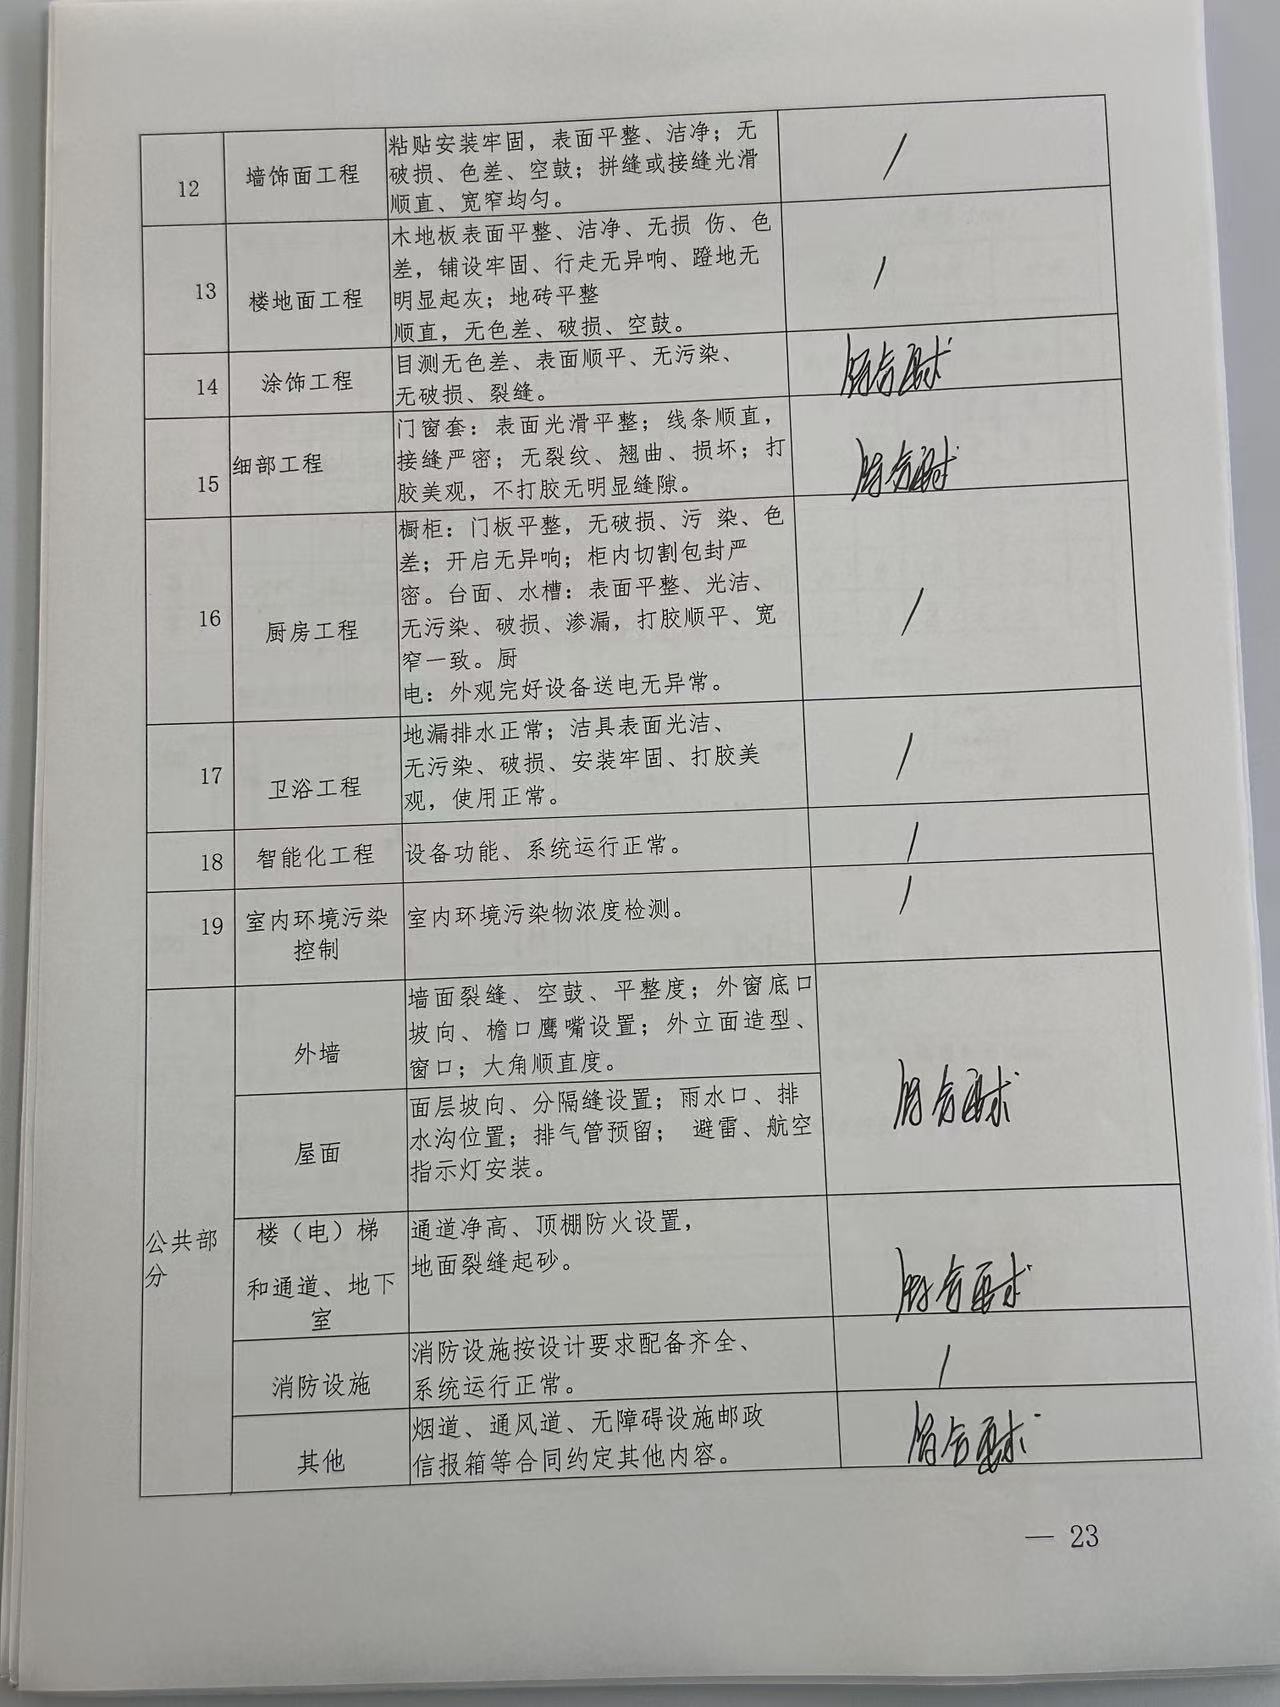 12
墙饰面工程
粘贴安装牢固，表面平整、洁净；无
破损、色差、空鼓；拼缝或接缝光滑
顺直、宽窄均匀。
/
13
楼地面工程
木地板表面平整、洁净、无损 伤、色
差，铺设牢固、行走无异响、蹬地无
明显起灰；地砖平整
顺直，无色差、破损、空鼓。
/
14
涂饰工程
目测无色差、表面顺平、无污染、
无破损、裂缝。
符合要求
15
细部工程
门窗套：表面光滑平整；线条顺直，
接缝严密；无裂纹、翘曲、损坏；打
胶美观，不打胶无明显缝隙。
符合要求
16
厨房工程
橱柜：门板平整，无破损、污 染、色
差；开启无异响；柜内切割包封严
密。台面、水槽：表面平整、光洁、
无污染、破损、渗漏，打胶顺平、宽
窄一致。厨
电：外观完好设备送电无异常。
/
17
卫浴工程
地漏排水正常；洁具表面光洁、
无污染、破损、安装牢固、打胶美
观，使用正常。
/
18
智能化工程
设备功能、系统运行正常。
/
19
室内环境污染
控制
室内环境污染物浓度检测。
/
公共部
分
外墙
墙面裂缝、空鼓、平整度；外窗底口
坡向、檐口鹰嘴设置；外立面造型、
窗口；大角顺直度。
屋面
面层坡向、分隔缝设置；雨水口、排
水沟位置；排气管预留； 避雷、航空
指示灯安装。
符合要求
楼（电）梯
和通道、地下
室
通道净高、顶棚防火设置，
地面裂缝起砂。
符合要求
消防设施
消防设施按设计要求配备齐全、
系统运行正常。
/
其他
烟道、通风道、无障碍设施邮政
信报箱等合同约定其他内容。
符合要求
— 23